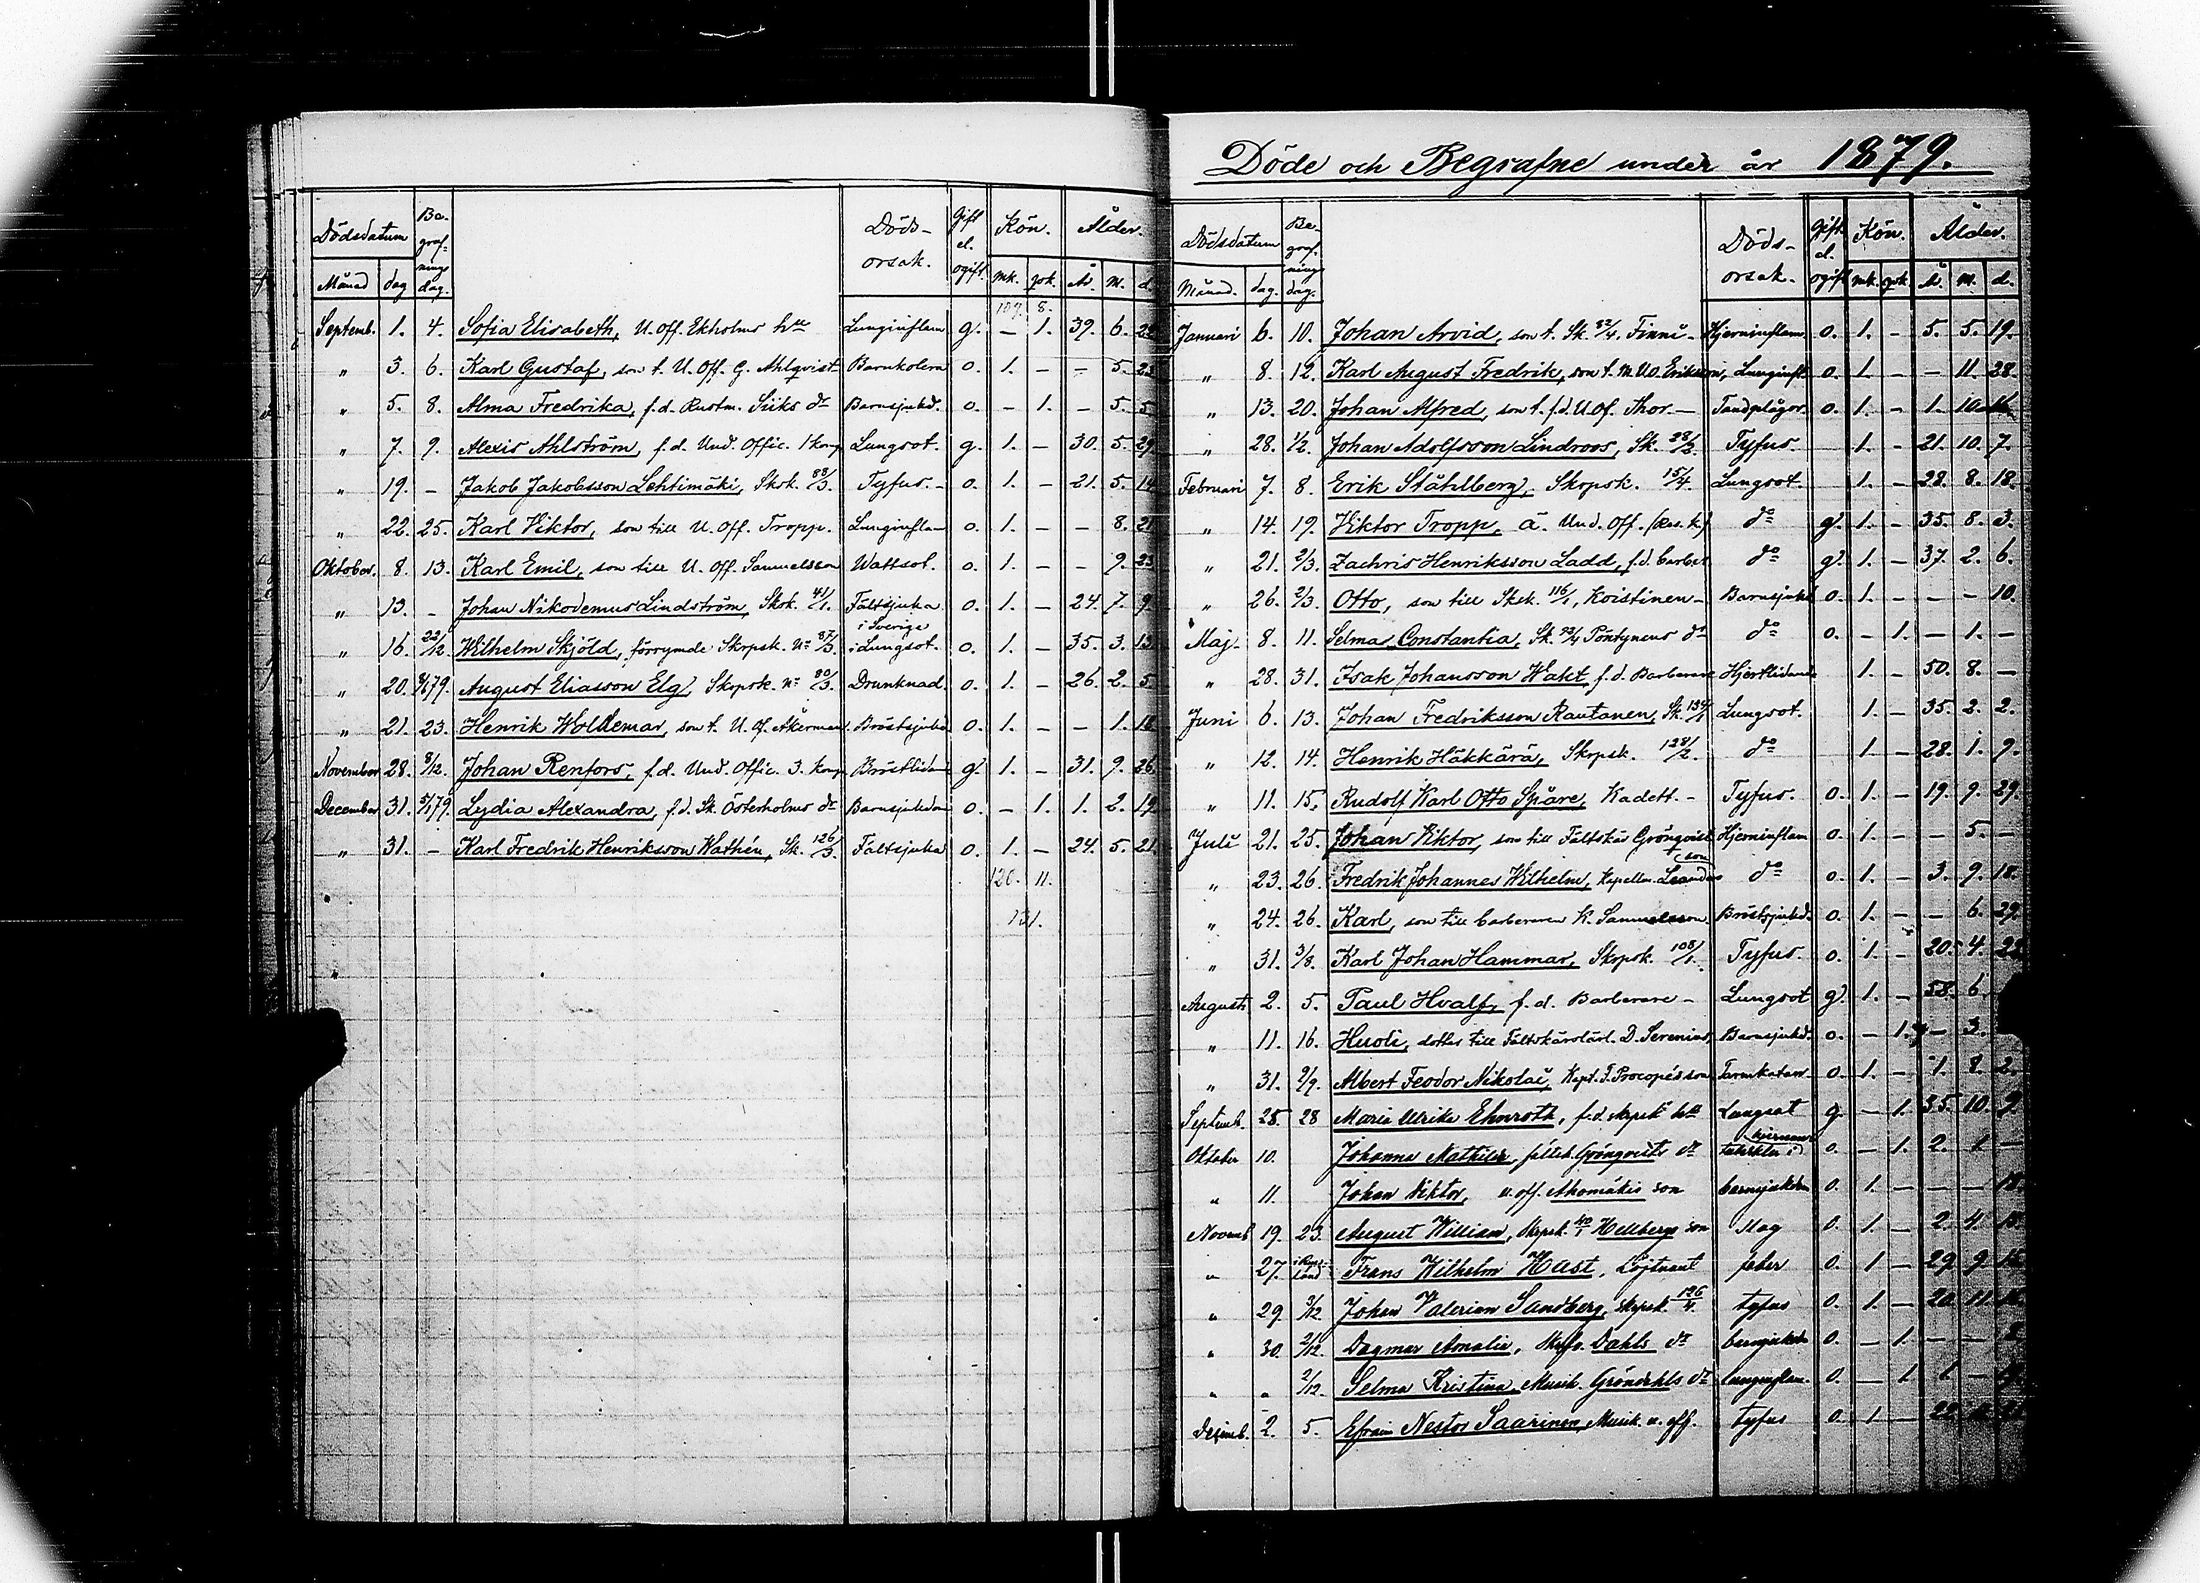 Dödsdatum Be- graf- nings dag. Döds- orsak. Gift el. ogift. Kön. Ålder.
Månad dag mk. qvk. År. M. d.
109. 8.
Septemb. 1. 4. Sofia Elisabeth, U. Off. Ekholms hu Lunginflam g. — 1. 39. 6. 22
" 3. 6. Karl Gustaf, son t. U. Off. G. Ahlqvist Barnkolera o. 1. — — 5. 23
" 5. 8. Alma Fredrika, f.d. Rustm. Siiks dr Barnsjukd. o. — 1. — 5. 5.
" 7. 9. Alexis Ahlström, f.d. Und. Offic. 1 komp Lungsot. g. 1. — 30. 5. 29
" 19. — Jakob Jakobsson Lehtimäki, Sksk. 88/3. Tyfus. — o. 1. — 21. 5. 14
" 22. 25. Karl Viktor, son till U. Off. Tropp. Lunginflam o. 1. — — 8. 21
Oktober. 8. 13. Karl Emil, son till U. Off. Samuelsson Wattsot. o. 1. — — 9. 23
" 13. — Johan Nikodemus Lindström, Skok. 41/1. Fältsjuka o. 1. — 24. 7. 9.
" 16. 22/12 Wilhelm Skjöld, förrymde Skrpsk. No 87/3. i Sverige i Lungsot. o. 1. — 35. 3. 13
" 20. /79. August Eliasson Elg, Skrpsk. No 80/3. Drunknad. o. 1. — 26. 2. 5.
" 21. 23. Henrik Woldemar, son t. U. Of. Åkerman. Bröstsjukd o. 1. — — 1. 18
November 28. 8/12. Johan Renfors, f.d. Und. Offic. 3. komp Bröstlidan g. 1. — 31. 9. 26
December 31. /79. Lydia Alexandra, f.d. Sk. Österholms dr Barnsjukdom o. — 1. 1. 2. 19
" 31. — Karl Fredrik Henriksson Wathén, Sk. 126/3. Fältsjuka o. 1. — 24. 5. 21.
120. 11.
131.
Döde och Begrafne under år 1879.
Dödsdatum Be- graf- nings dag. Döds- orsak. Gift el. ogift Kön. Ålder.
Månad. dag. mk. qvk. År. M. d.
Januari 6. 10. Johan Arvid, son t. Sk. 32/4. Finni — Hjerninflam o. 1. — 5. 5. 19.
" 8. 12. Karl August Fredrik, son t. M. U.O. Eriksson, Lunginfl. o. 1. — — 11. 28.
" 13. 20. Johan Alfred, son t. f.d. U. Of. Thor. — Tandplågor. o. 1. — 1. 10.
" 28. 1/2. Johan Adolfsson Lindroos, Sk. 28/2. Tyfus. 1. — 21. 10. 7.
Februari 7. 8. Erik Ståhlberg, Skrpsk. 15/4. Lungsot. 1. — 28. 8. 18.
" 14. 19. Viktor Tropp, ä. Und. Off. (Res. k.) do g. 1. — 35. 8. 3.
" 21. 2/3. Zachris Henriksson Ladd, f.d. barber do g. 1. — 37. 2. 6.
" 26. 2/3. Otto, son till Sksk. 116/1, Koistinen — Barnsjukd o. 1. — — — 10.
Maj. 8. 11. Selma Constantia, Sk. 92/4 Pöntynens dr do o. — 1. — 1. —
" 28. 31. Isak Johansson Wakt, f.d. Barberare Hjertlidande 1. — 50. 8. —
Juni 6. 13. Johan Fredriksson Rautanen, Sk. 134/1 Lungsot. 1. — 35. 2. 2.
" 12. 14. Henrik Häkkärä, Skrpsk. 128/2. do 1. — 28. 1. 9.
" 11. 15. Rudolf Karl Otto Spåre, Kadett. — Tyfus. o. 1. — 19. 9. 29.
Juli 21. 25. Johan Viktor, son till Fältskär Grönqvist Hjerninflam o. 1. — — 5. —
" 23. 26. Fredrik Johannes Wilhelm, Kapellm. Leanders son do o. 1. — 3. 9. 18.
" 24. 26. Karl, son till barberaren K. Samuelsson. Bröstsjukd. o. 1. — — 6. 29.
" 31. 3/8. Karl Johan Hammar, Skrpsk. 108/1. Tyfus. o. 1. — 20. 4. 22
Augusti 2. 5. Paul Hvalf, f.d. Barberare — Lungsot g. 1. — 58. 6.
" 11. 16. Huoti, dotter till Fältskärslärl. D. Serenius, Barnsjukd. o. — 1. — 3.
" 31. 2/9. Albert Feodor Nikolai, Kapt. F. Procopés son Tarmkatarr o. 1. — 1. 8. 2.
Septemb. 25. 28 Maria Ulrika Ehnroth, f.d. skrpsk hu Lungsot g. — 1. 35. 10. 9.
Oktober 10. Johanna Mathilda, fältsk. Grönqvists dr tuberkler i hjernan o. — 1. 2. 1 —
" 11. Johan Viktor, u. off. Ahomäkis son barnsjukdom o. 1. — — — 18.
Novemb 19. 23. August William, Skrpsk. 40/1 Hellbergs son Slag o. 1. — 2. 4. 15.
" 27. i Ryssland Frans Wilhelm Hast, Löjtnant feber o. 1 — 29. 9.
" 29. 3/12 Johan Valerian Sandberg, skrpsk. 126/4. tyfus o. 1. — 20. 11.
" 30. 2/12. Dagmar Amalia, Dahls dr barnsjukdom o. — 1. — —
" " 2/12. Selma Kristina, Musik. Gröndahls dr lunginflam. o. — 1 1 —
Desemb. 2. 5. Efraim Nestor Saarinen, Musik. u. off. tyfus o. 1. — 22.